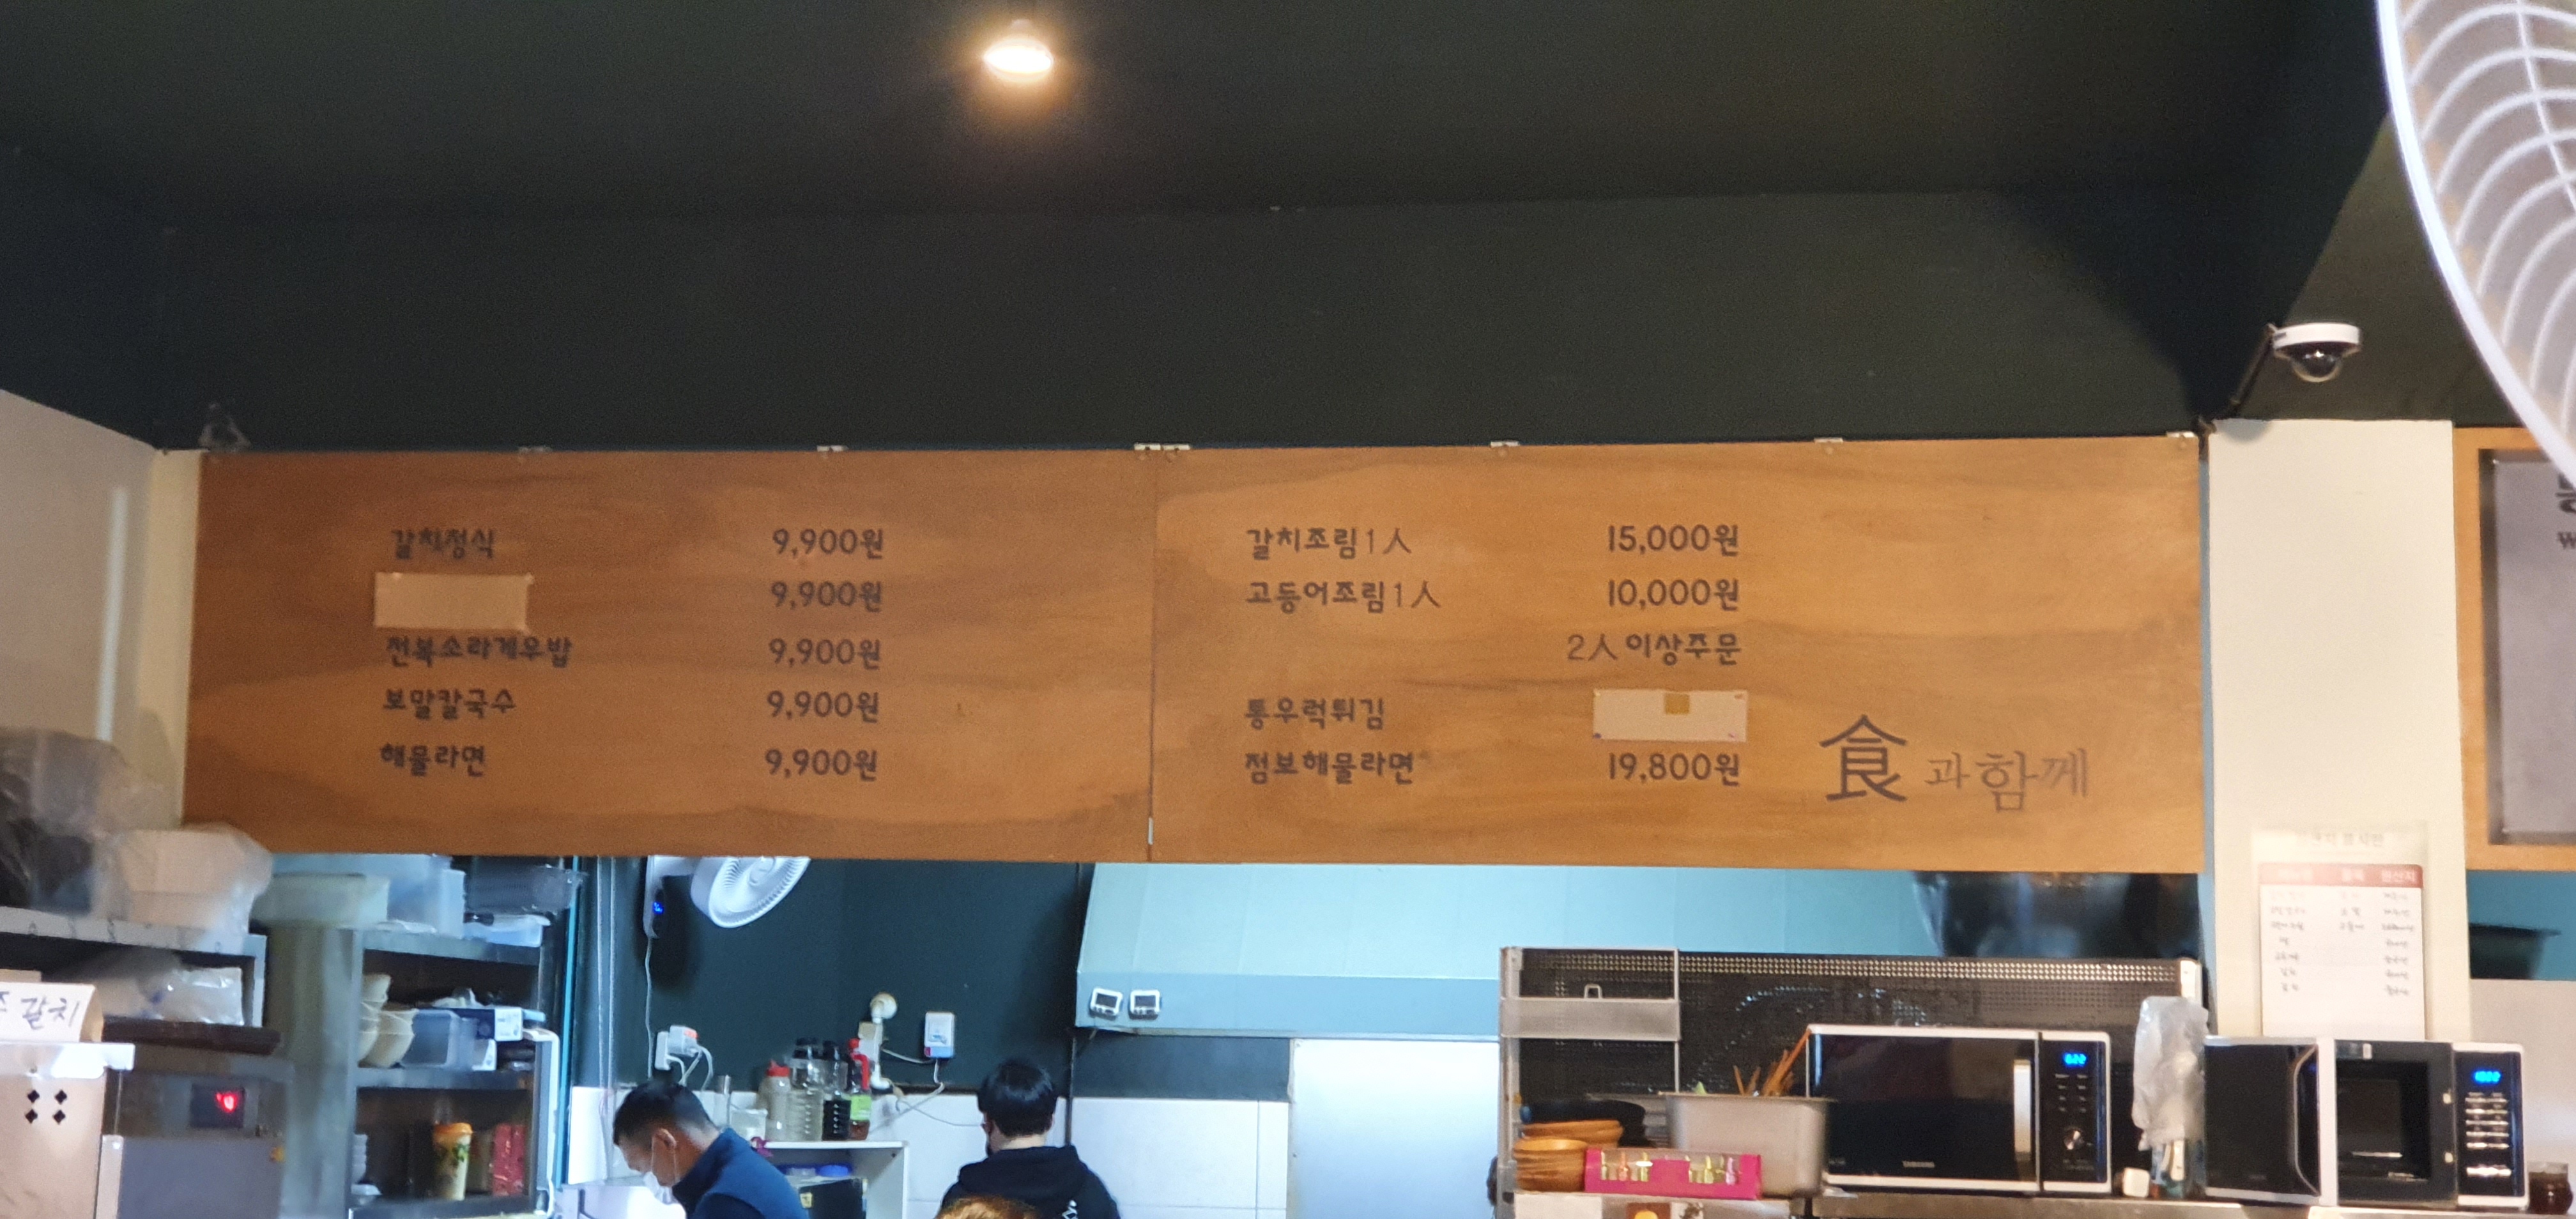 갈치정식 9,900원
9,900원
전복소라게우밥 9,900원
보말칼국수 9,900원
해물라면 9,900원
갈치조림1人 15,000원
고등어조림1人 10,000원
2人이상주문
통우럭튀김
점보해물라면 19,800원
食과함께
갈치
SAMSUNG